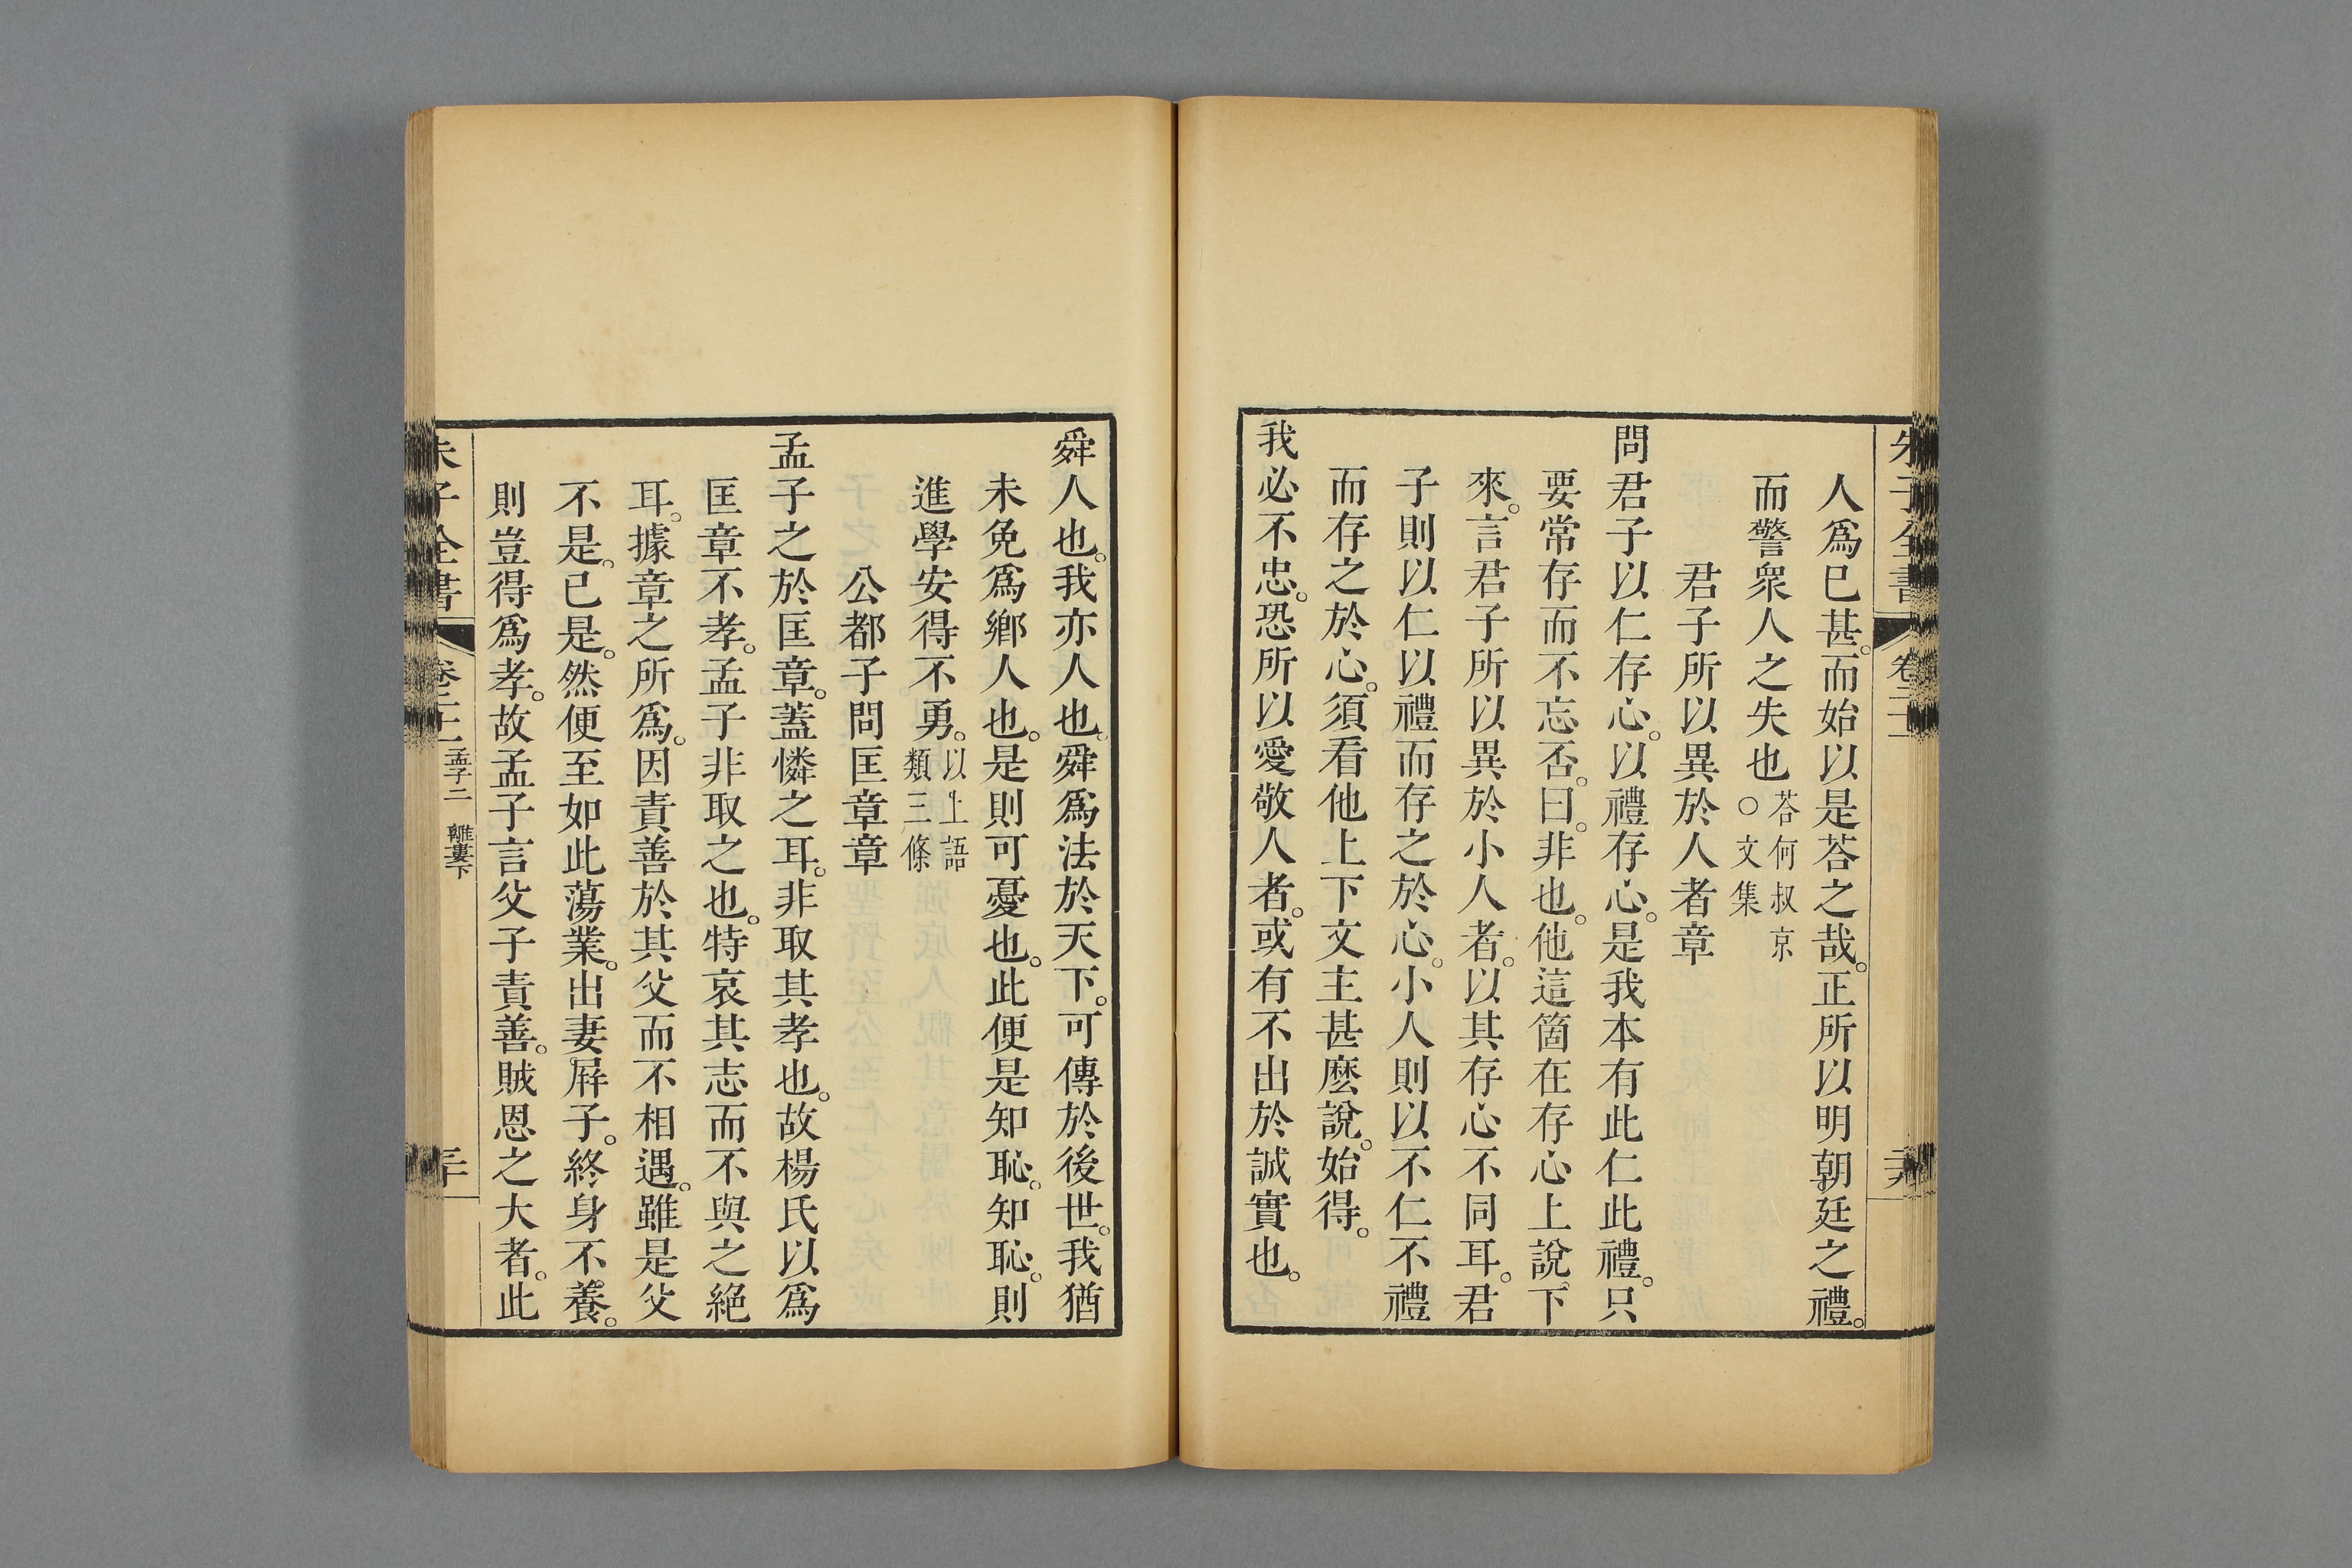 人爲已甚。而始以是荅之哉。正所以明朝廷之禮。
而警衆人之失也荅何叔京○文集
君子所以異於人者章
問君子以仁存心。以禮存心。是我本有此仁此禮。只
要常存而不忘否。曰。非也。他這箇在存心上說下
來。言君子所以異於小人者。以其存心不同耳。君
子則以仁以禮而存之於心。小人則以不仁不禮
而存之於心。須看他上下文主甚麽說。始得。
我必不忠。恐所以愛敬人者。或有不出於誠實也。
舜人也。我亦人也。舜爲法於天下。可傳於後世。我猶
未免爲鄉人也。是則可憂也。此便是知恥。知恥。則
進學安得不勇。以上語類三條
公都子問匡章章
孟子之於匡章。蓋憐之耳。非取其孝也。故楊氏以爲
匡章不孝。孟子非取之也。特哀其志而不與之絕
耳。據章之所爲。因責善於其父而不相遇。雖是父
不是。已是。然便至如此蕩業。出妻屛子。終身不養。
則豈得爲孝。故孟子言父子責善。賊恩之大者。此
朱子全書 卷二十一 孟子二 離婁下 三十